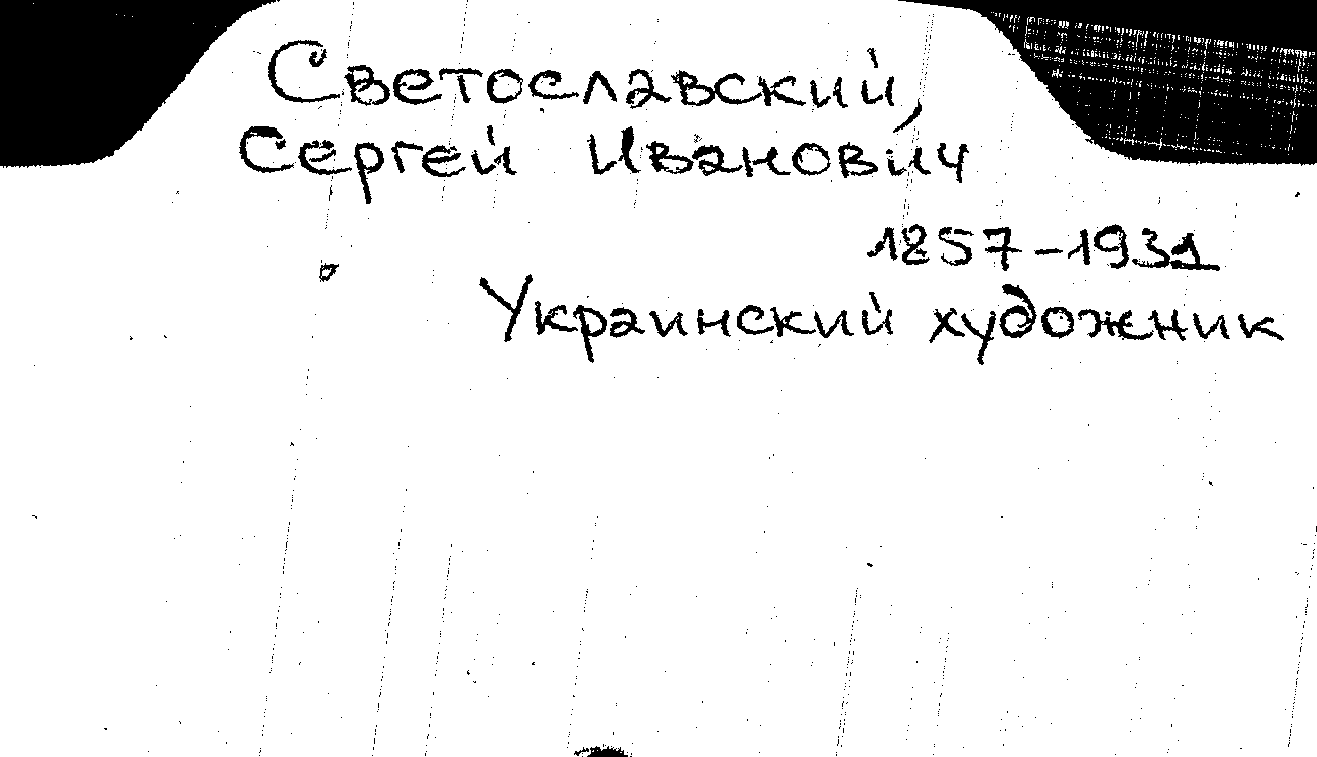 Светославский,
Сергей Иванович
1857-1931
Украинский художник